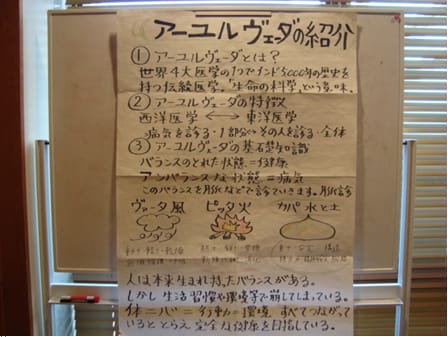 アーユルヴェーダの紹介
① アーユルヴェーダとは？
世界4大医学の1つでインド5000年の歴史を
持つ伝統医学。「生命の科学」という意味。
② アーユルヴェーダの特徴
西洋医学 ←→ 東洋医学
病気を診る・1部分 その人を診る・全体
③ アーユルヴェーダの基礎知識
バランスのとれた状態＝健康
アンバランスな状態＝病気
このバランスを脈などで診ていきます。脈診
ヴァータ風 ピッタ火 カパ 水と土
人は本来生まれ持ったバランスがある。
しかし生活習慣や環境等で崩してしまっている。
体＝心＝行動＝環境 すべてつながって
いるととらえ完全な健康を目指している。